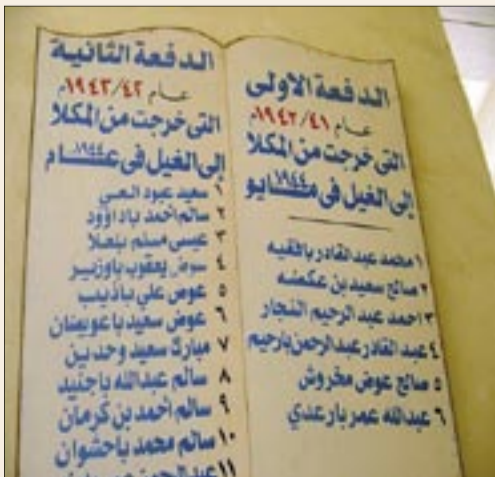 الدفعة الاولى
عام ١٩٤٢/٤١م
التى خرجت من المكلا
إلى الغيل فى مايو ١٩٤٤
١ محمد عبدالقادر بافقيه
٢ صالح سعيد بن عكضه
٣ احمد عبدالرحيم النجار
٤ عبدالقادر عبدالرحمن بارحيم
٥ صالح عوض مخروش
٦ عبدالله عمر بارعدي
الدفعة الثانية
عام ١٩٤٣/٤٢م
التى خرجت من المكلا
إلى الغيل فى عام ١٩٤٤
١ سعيد عبود
٢ سالم احمد باداؤود
٣ عيسى مسلم بنعلا
٤ عوض يعقوب باوزير
٥ عوض علي باذيب
٦ عوض سعيد باعويضان
٧ مبارك سعيد وحدين
٨ سالم عبدالله باجنيد
٩ سالم أحمد بن كرمان
١٠ سالم محمد باحشوان
١١ عبدالرحمن